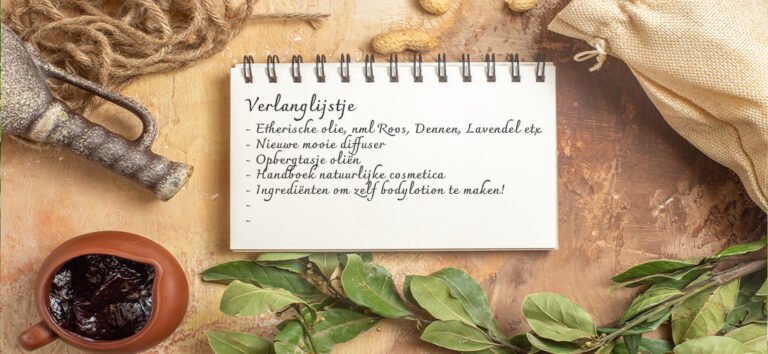 Verlanglijstje
- Etherische olie, nml Roos, Dennen, Lavendel etx
- Nieuwe mooie diffuser
- Opbergtasje oliën
- Handboek natuurlijke cosmetica
- Ingrediënten om zelf bodylotion te maken!
-
-